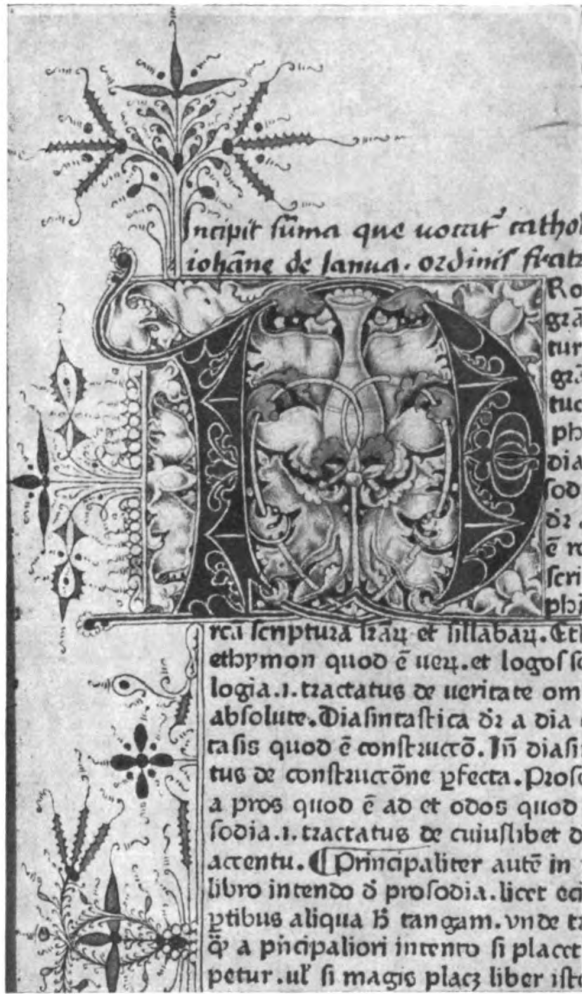 Incipit sūma que uocat᷑ cathol
iohāne de Janua. ordinis fratr
P Ro
grā
tur
grā
tuc
ph
dia
sod
dr̄
ē
scri
phi
rca scriptura lr̄aꝝ et sillabaꝝ. Eti
ethymon quod ē ueꝝ. et logos
logia .i. tractatus de ueritate om
absolute. Diasintastica dr̄ a dia
tasis quod ē constructō. Iñ diasi
tus de constructōne ꝑfecta. Prosō
a pros quod ē ad et odos quod
sodia .i. tractatus de cuiuslibet d
accentu. ¶ Principaliter autē in
libro intendo d̄ prosodia. licet eci
ꝑtibus aliqua ħ tangam. vnde t
ꝙ a pñcipaliori intento si placet
petur. ul̓ si magis placꝫ liber iste